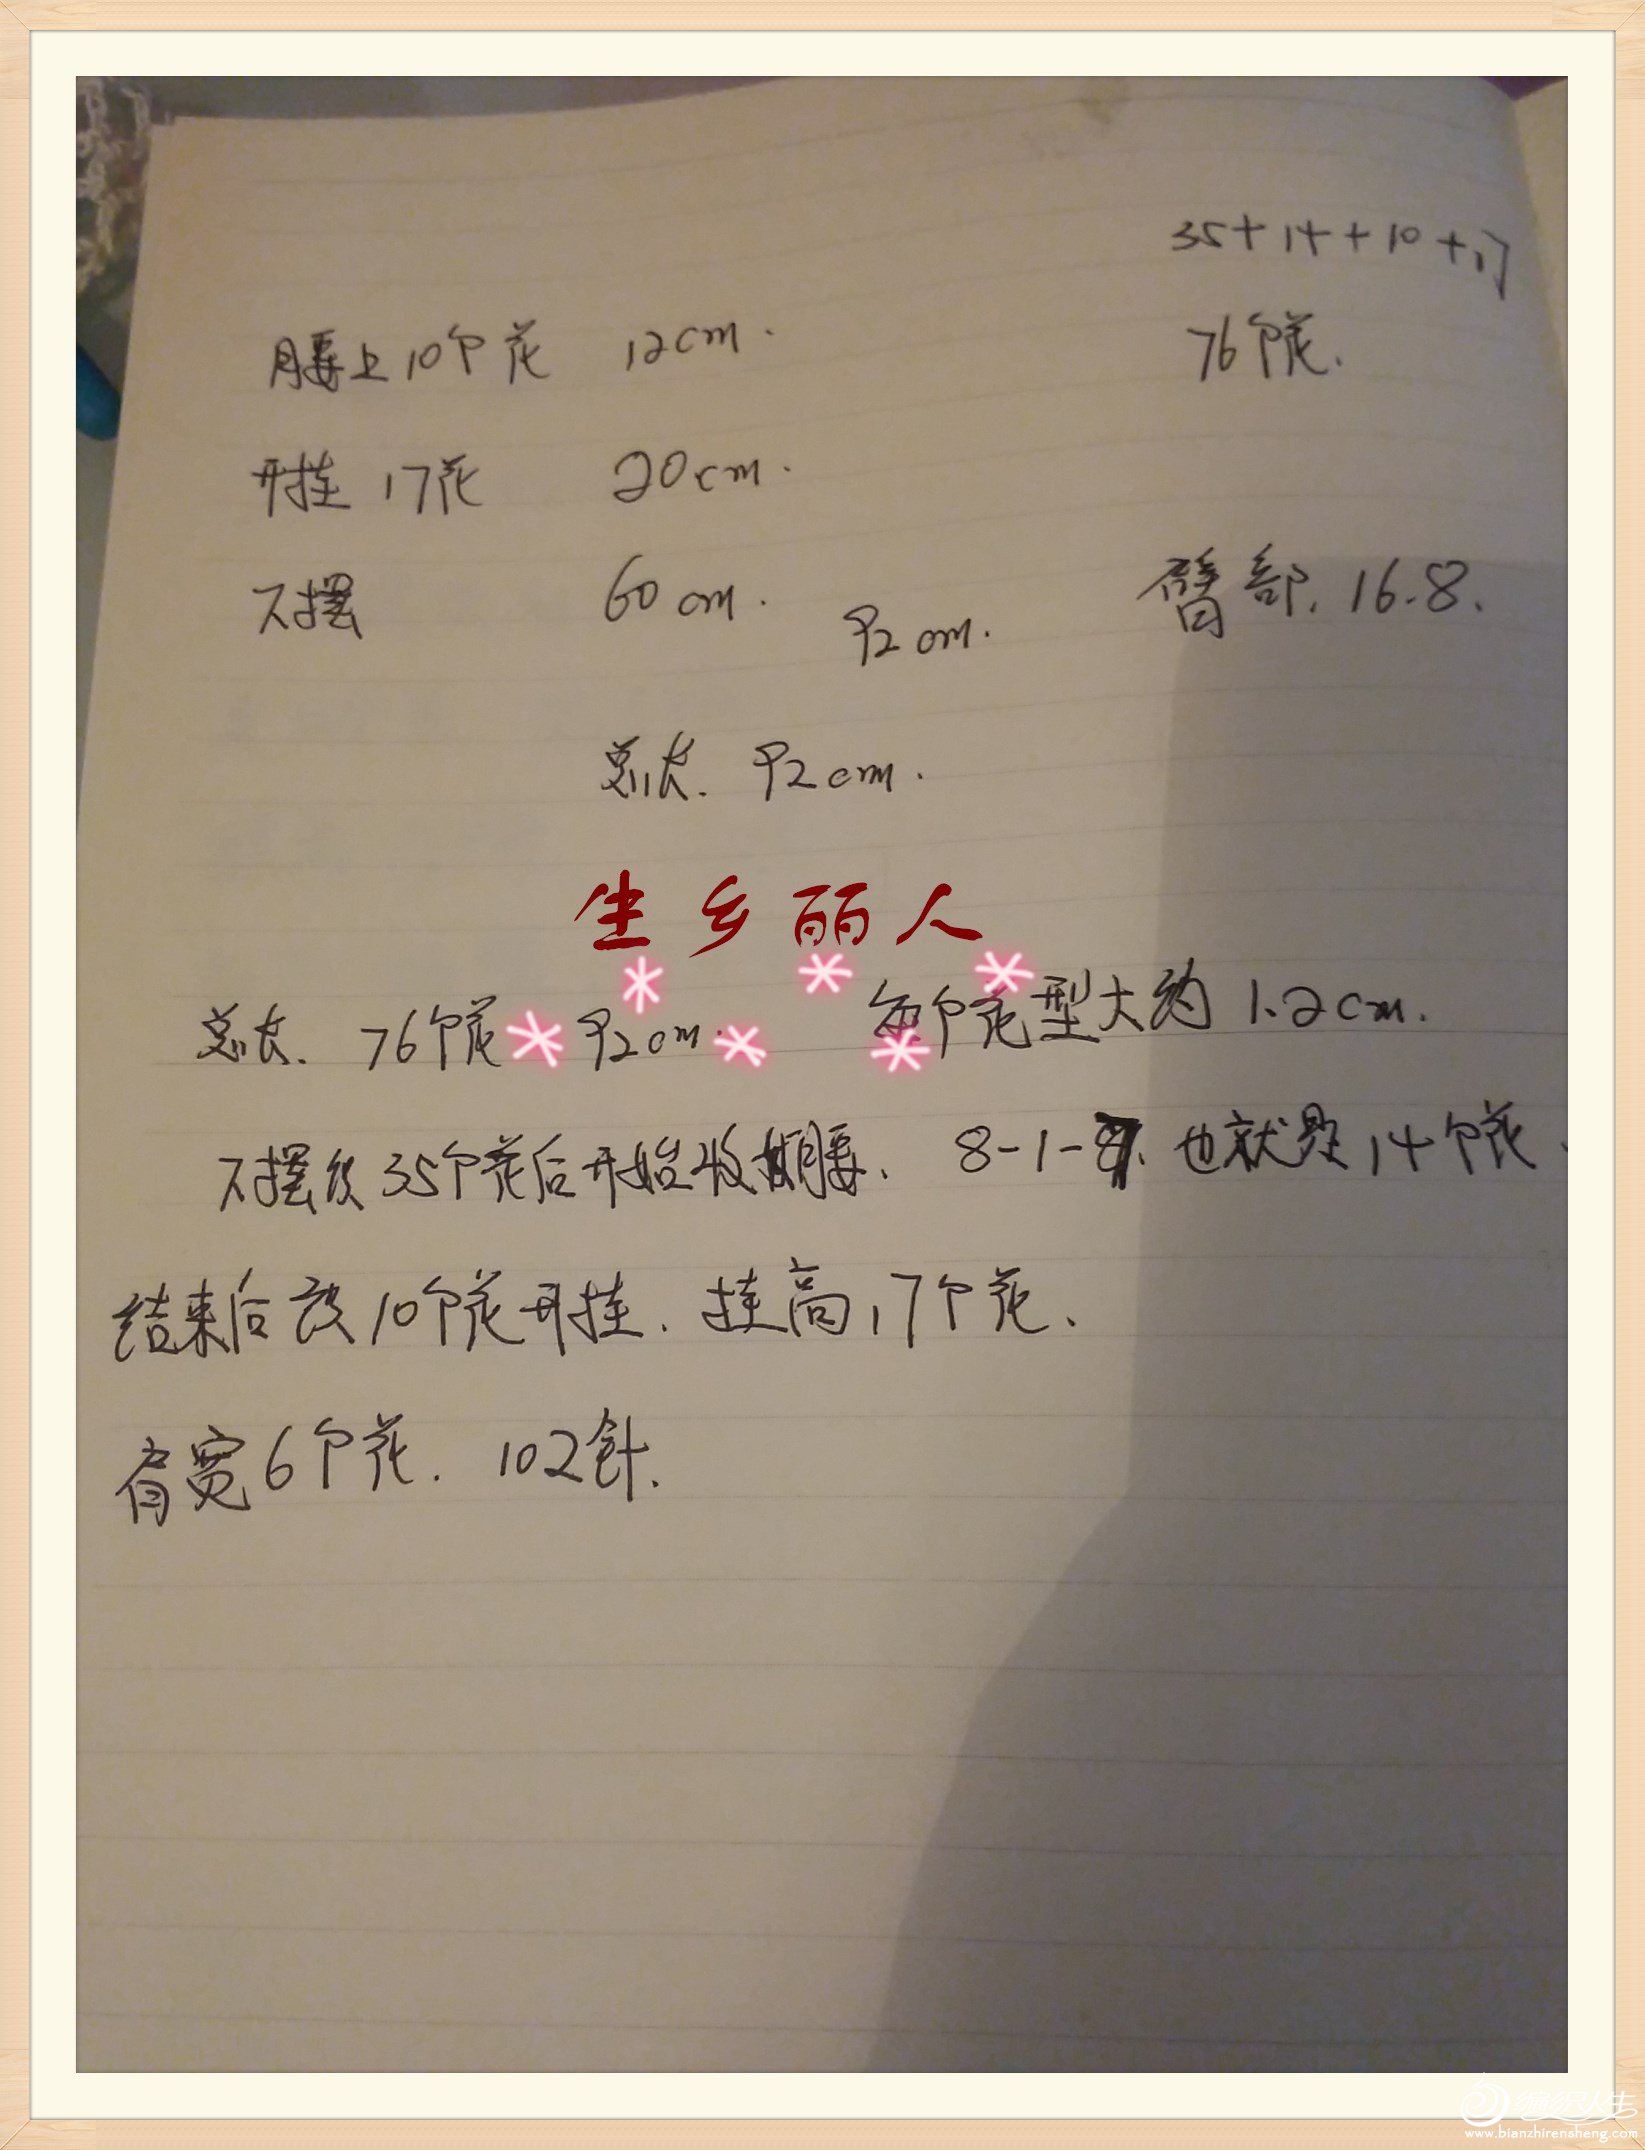 35+14+10+17
腰上10个花 12cm.
76个花.
开挂 17花 20cm.
下摆 60cm.
臀部. 16.8.
92cm.
总长. 92cm.
生乡丽人
总长. 76个花 92cm. 每个花型大约 1.2cm.
下摆织35个花后开始收腰. 8-1-7. 也就是14个花.
结束后 10个花开挂. 挂高17个花.
肩宽6个花. 102针.
编织人生
www.bianzhirensheng.com